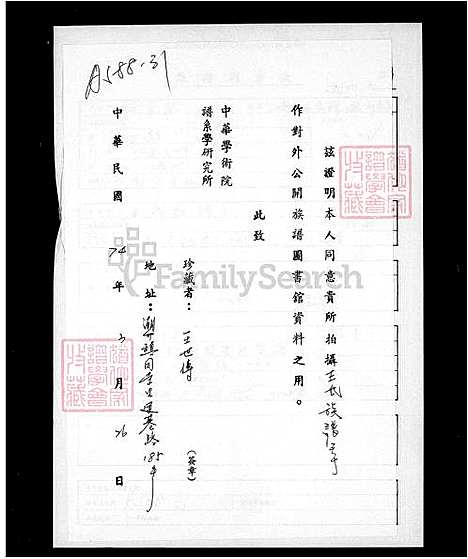 A588-31
茲證明本人同意貴所拍攝王氏族譜
作對外公開族譜圖書館資料之用。
此致
中華學術院
譜系學研究所
珍藏者：王世傳
(簽章)
地址：潮
185
中華民國74年3月26日
FamilySearch